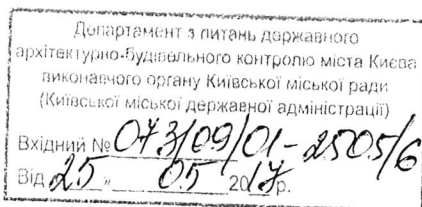 Департамент з питань державного
архітектурно-будівельного контролю міста Києва
виконавчого органу Київської міської ради
(Київської міської державної адміністрації)
Вхідний № 073/09/01-2505/6
Від 25 " 05 2017р.